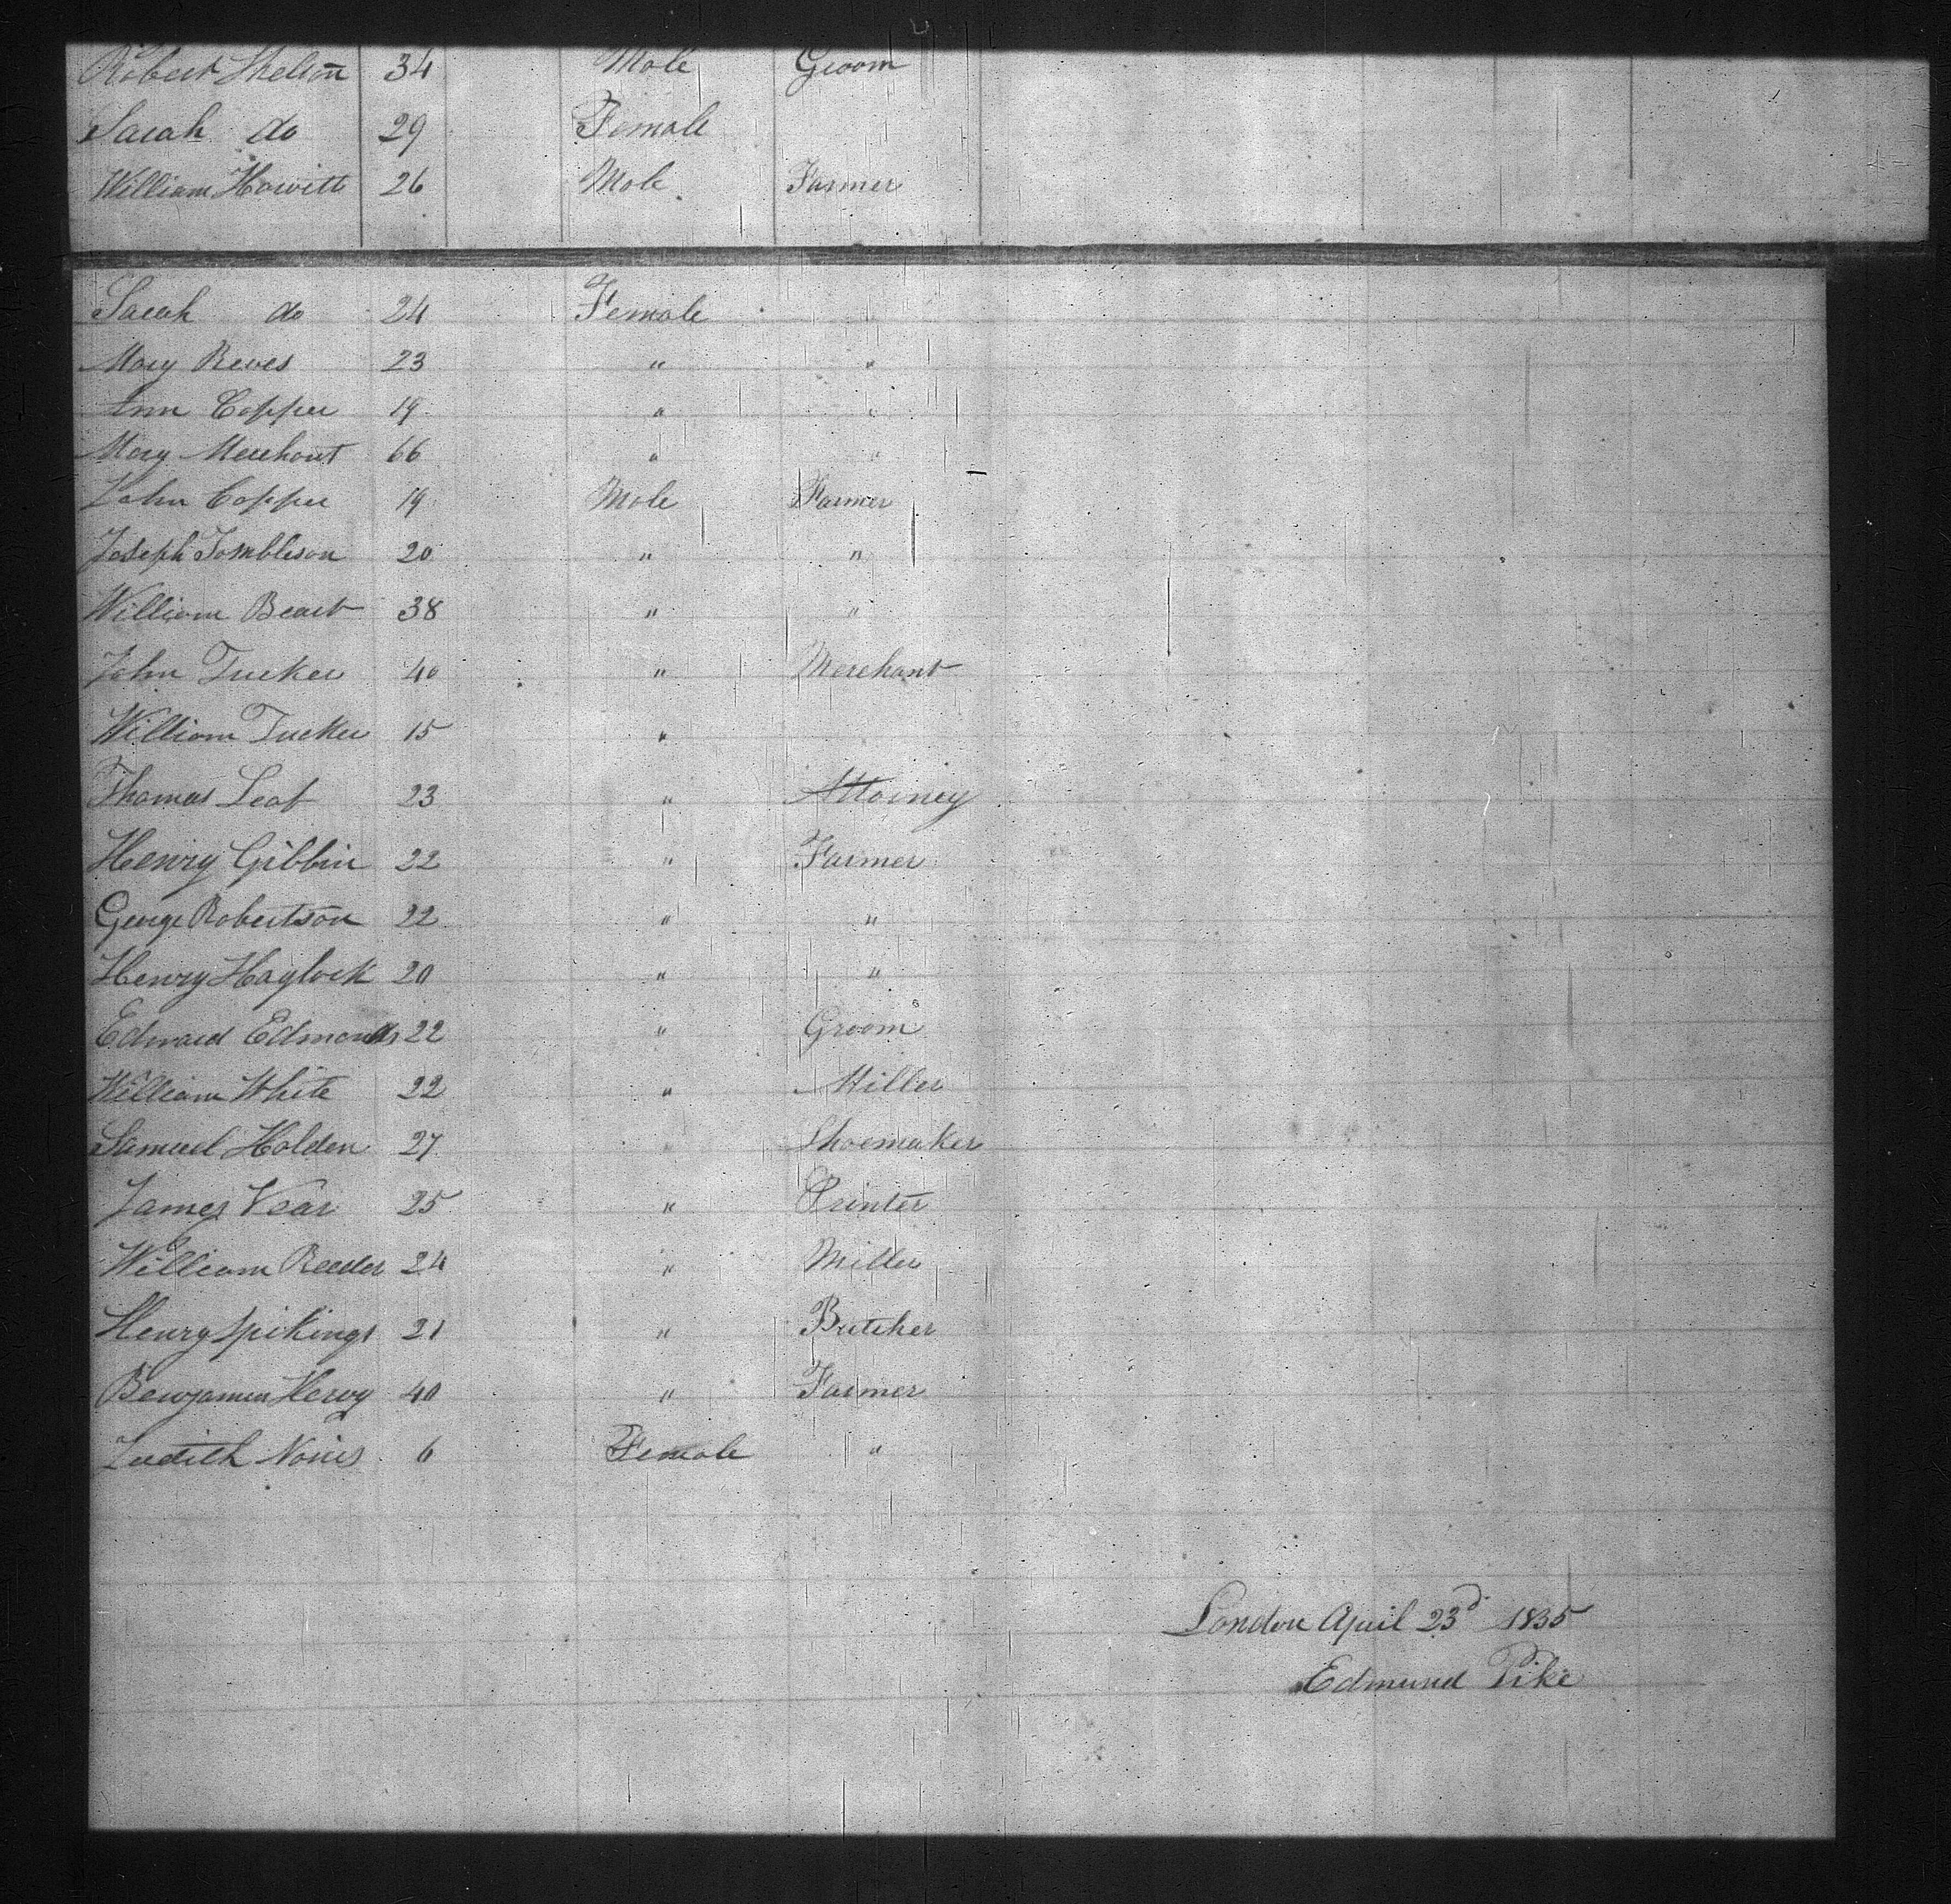 Robert Shelton 34 Male Groom
Sarah do 29 Female
William Howitt 26 Male Farmer
Sarah do 24 Female "
Mary Reves 23 " "
Ann Copper 19 " "
Mary Merchant 66 " "
John Copper 19 Male Farmer
Joseph Tombleson 20 " "
William Beart 38 " "
John Tucker 40 " Merchant
William Tucker 15 "
Thomas Leaf 23 " Attorney
Henry Gibbin 22 " Farmer
George Robertson 22 " "
Henry Haylock 20 " "
Edward Edmonds 22 " Groom
William White 22 " Miller
Samuel Holden 27 " Shoemaker
James Vear 25 " Printer
William Reeder 24 " Miller
Henry Spikings 21 " Butcher
Benjamin Hervy 40 " Farmer
Judith Norris 6 Female "
London April 23d 1835
Edmund Pike